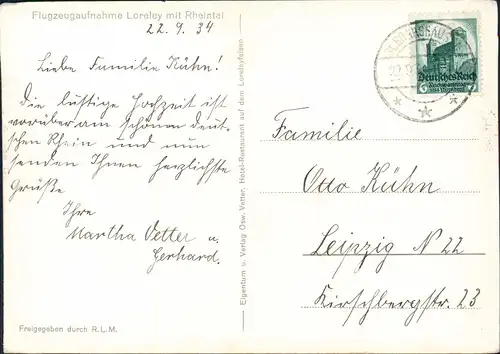 Flugzeugaufnahme Loreley mit Rheintal
22. 9. 34
Liebe Familie Kühn!
Die lustige Hochzeit ist
vorüber am schönen deut-
schen Rhein und nun
senden Ihnen herzlichste
Grüße
Ihre
Martha Vetter u.
Gerhard.
Freigegeben durch R.L.M.
Eigentum u. Verlag Osw. Vetter, Hotel-Restaurant auf dem Loreleyfelsen
Deutsches Reich
6
Familie
Otto Kühn
Leipzig N 22
Kirschbergstr. 23